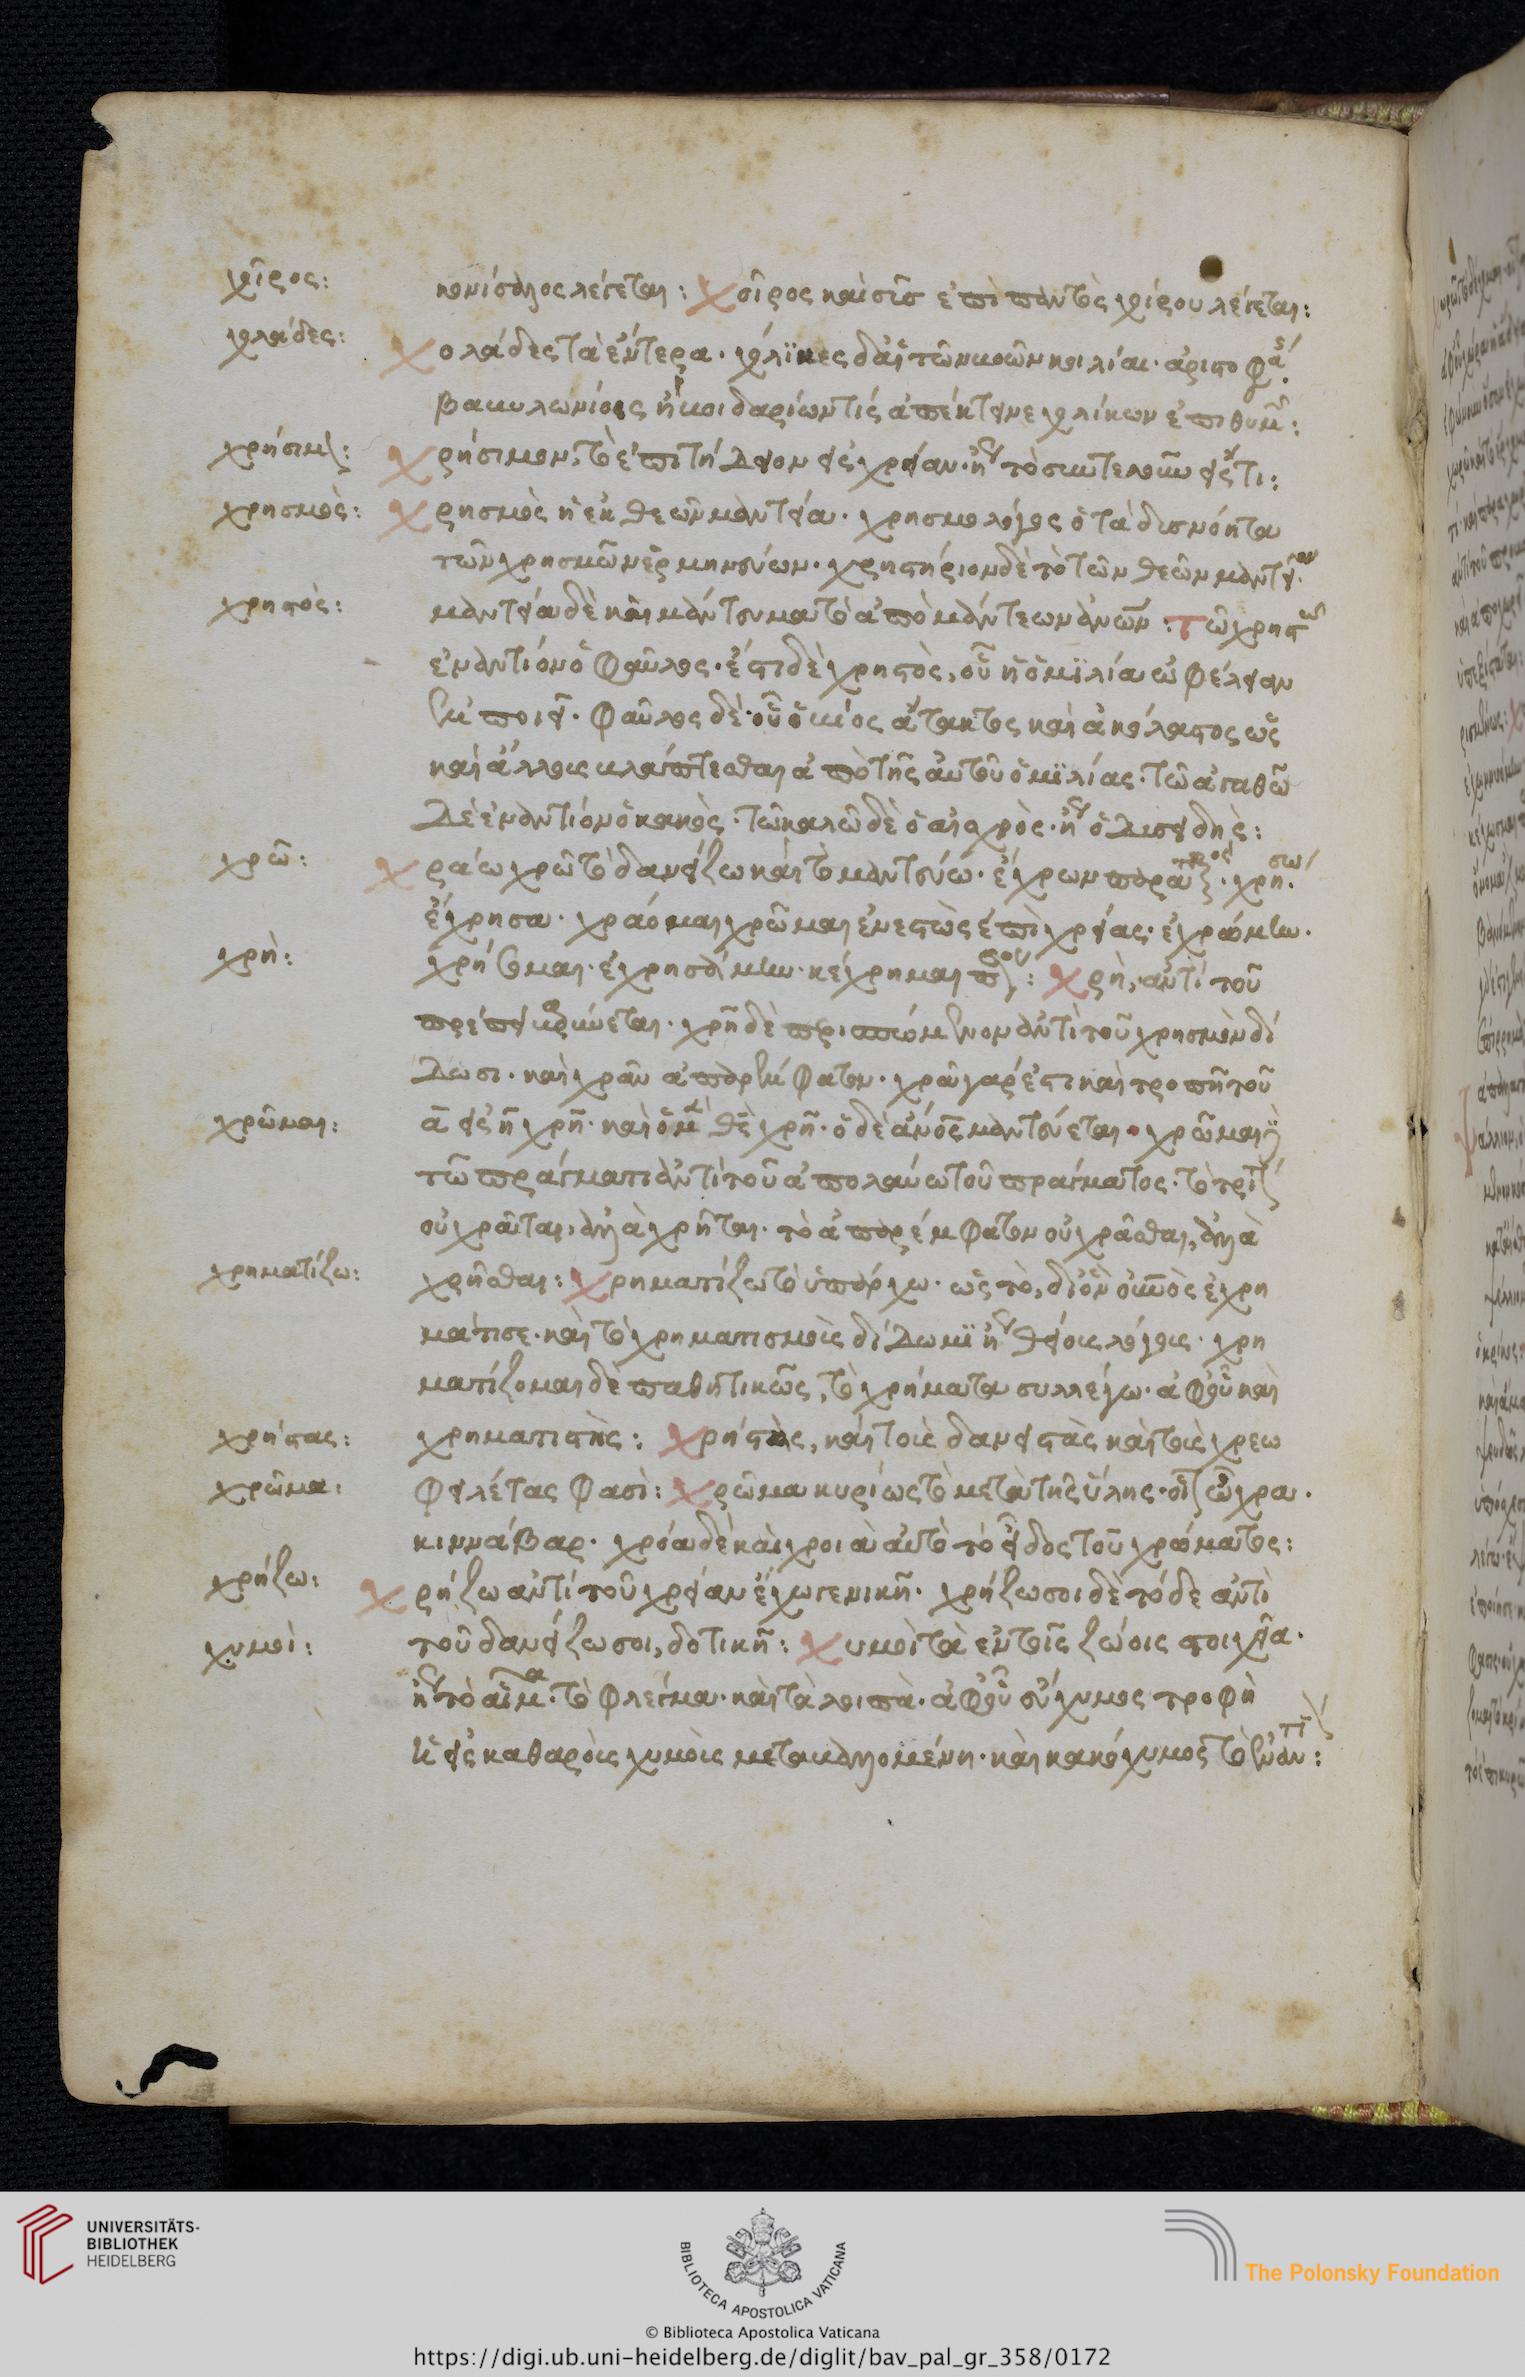 χοῖρος:
κονίσαλος λέγεται: Χοῖρος καὶ σῦς ἐπὶ παντὸς χοίρου λέγεται:
χολάδες:
Χολάδες τὰ ἔντερα. χόλϊκες δὲ αἱ τῶν βοῶν κοιλίαι. ἀριστοφά
βαβυλωνίοις ἢ βοιδαρίων τίς ἀπέκτεινε χολίκων ἐπιθυμ:
χρήσιμ:
Χρήσιμον, τὸ ἐπιτήδειον εἰς χρείαν. ἤγουν τὸ συντελοῦν εἴς τι:
χρησμὸς:
Χρησμὸς ἡ ἐκ θεῶν μαντεία. χρησμολόγος ὁ τὰ δισνόητα
τῶν χρησμῶν ἑρμηνεύων. χρηστήριον δὲ τὸ τῶν θεῶν μαντεῖον
χρηστὸς:
μαντεία δὲ καὶ μάντευμα τὸ ἀπὸ μάντεων ἀνων: Τῶ χρηστῶ
ἐναντίον ὁ φαῦλος. ἔστι δὲ χρηστὸς, οὗ ἡ ὁμϊλία ὠφέλειαν
ἐμποιεῖ. φαῦλος δὲ. οὗ ὁ βίος ἄτακτος καὶ ἀκόλαστος ὡς
καὶ ἄλλους βλάπτεσθαι ἀπὸ τῆς αὐτοῦ ὁμϊλίας. τῶ ἀγαθῶ
δὲ ἐναντίον ὁ κακὸς. τῶ καλῶ δὲ ὁ αἰσχρὸς. ἤγουν ὁ δισειδὴς:
χρῶ:
Χράω χρῶ τὸ δανείζω καὶ τὸ μαντεύω. ἔχρων χρήσω
ἔχρησα. χράομαι χρῶμαι ἐνεστὼς ἐπὶ χρείας. ἐχρώμην.
χρὴ:
χρήσομαι. ἐχρησάμην. κέχρημαι σοι: Χρὴ, ἀντὶ τοῦ
πρέπει καὶ γίνεται. χρῆ δὲ περισπώμενον ἀντὶ τοῦ χρησμὸν δί
δωσι. καὶ χρᾶν ἀπαρέμφατον. χρᾶ γάρ ἐστι καὶ τροπῆ τοῦ
χρῶμαι:
ᾶ εἰς ῆ χρῆ. καὶ ὁ μὲν θεὸς χρῆ. ὁ δὲ ἄνος μαντεύεται. χρῶμαι
τῶ πράγματι ἀντὶ τοῦ ἀπολαύω τοῦ πράγματος. τὸ τρίτ
οὐ χρᾶται, ἀλλὰ χρῆται. τὸ ἀπαρέμφατον οὐ χρᾶσθαι, ἀλλὰ
χρηματίζω:
χρῆσθαι: Χρηματίζω τὸ ὑπάρχω. ὡς τὸ, δι' ὃν ὁ ἐχρη
μάτισε. καὶ τὸ χρηματισμοὺς δίδωμϊ ἤγουν θείους λόγους. χρη
ματίζομαι δὲ παθητικῶς, τὸ χρήματα συλλέγω. ἀφ' οὗ καὶ
χρήστας:
χρηματιστὴς: Χρήστας, καὶ τοὺς δανειστὰς καὶ τοὺς χρεω
χρῶμα:
φειλέτας φασὶ: Χρῶμα κυρίως τὸ μετὰ τῆς ὕλης. οἷον ὤχρα.
κιννάβαρ. χρόα δὲ καὶ χροιὰ αὐτὸ τὸ εἶδος τοῦ χρώματος:
χρήζω:
Χρήζω ἀντὶ τοῦ χρείαν ἔχω γενικῆ. χρήζω σοι δὲ τόδε ἀντὶ
χυμοὶ:
τοῦ δανείζω σοι, δοτικῆ: Χυμοὶ τὰ ἐν τοῖς ζώοις στοιχεῖα.
ἤγουν τὸ αἷμα. τὸ φλέγμα. καὶ τὰ λοιπὰ. ἀφ' οὗ εὔχυμος τροφὴ
ἡ εἰς καθαροὺς χυμοὺς μεταβαλλομένη. καὶ κακόχυμος τὸ ἐναντί:
UNIVERSITÄTS-
BIBLIOTHEK
HEIDELBERG
BIBLIOTECA APOSTOLICA VATICANA
The Polonsky Foundation
© Biblioteca Apostolica Vaticana
https://digi.ub.uni-heidelberg.de/diglit/bav_pal_gr_358/0172